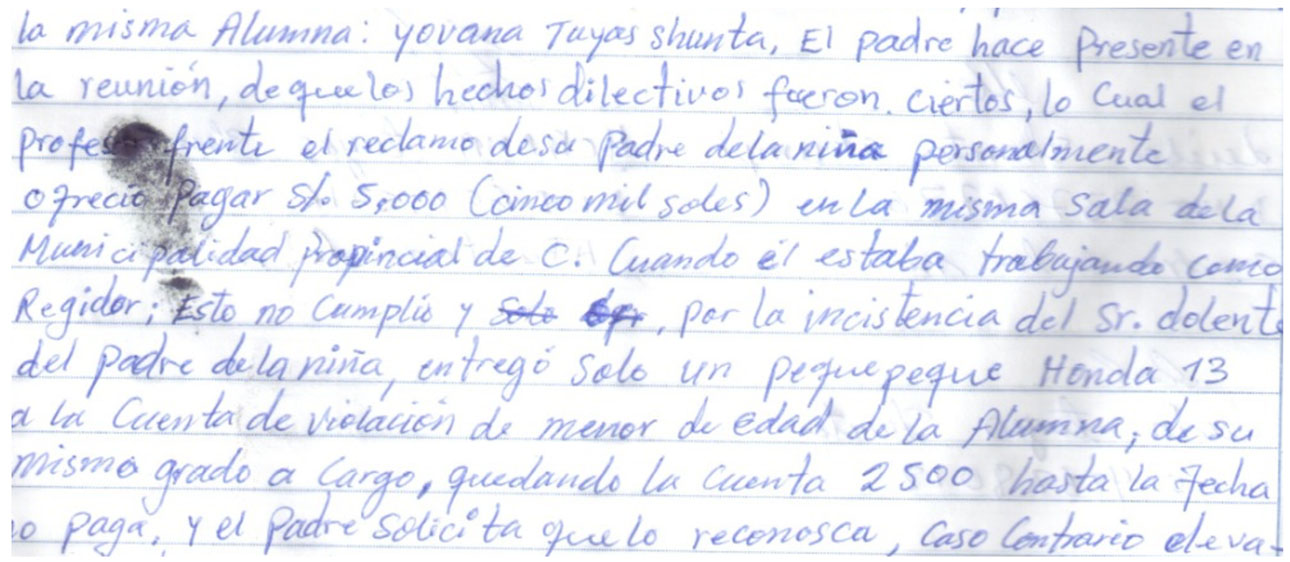 la misma Alumna: yovana Tuyas shunta, El padre hace Presente en
la reunión, de que los hechos dilectivos fueron. Ciertos, lo Cual el
profesor frente el reclamo de su Padre de la niña personalmente
ofreció pagar S/. 5,000 (cinco mil soles) en la misma Sala de la
Municipalidad propincial de C. Cuando él estaba trabajando como
Regidor; Esto no Cumplió y solo, por la incistencia del Sr. dolente
del padre de la niña, entregó Solo un pequepeque Honda 13
a la Cuenta de violación de menor de edad de la Alumna, de su
mismo grado a Cargo, quedando la cuenta 2500 hasta la fecha
no paga, y el Padre Solicita que lo reconosca, Caso Contrario eleva-